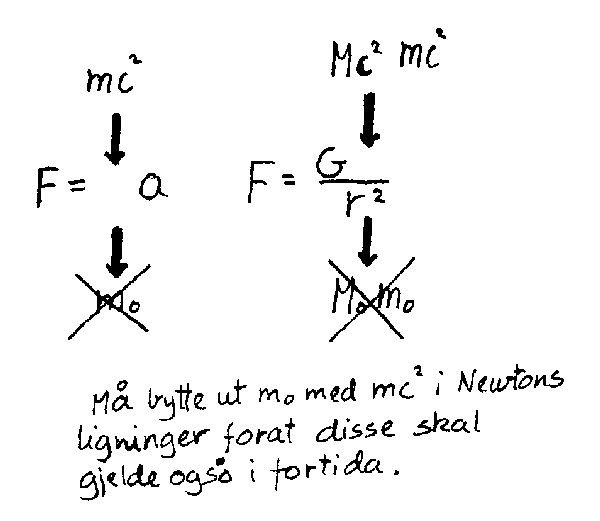 mc² Mc² mc²
F = a F = G/r²
m₀ M₀ m₀
Må bytte ut m₀ med mc² i Newtons
ligninger forat disse skal
gjelde også i fortida.